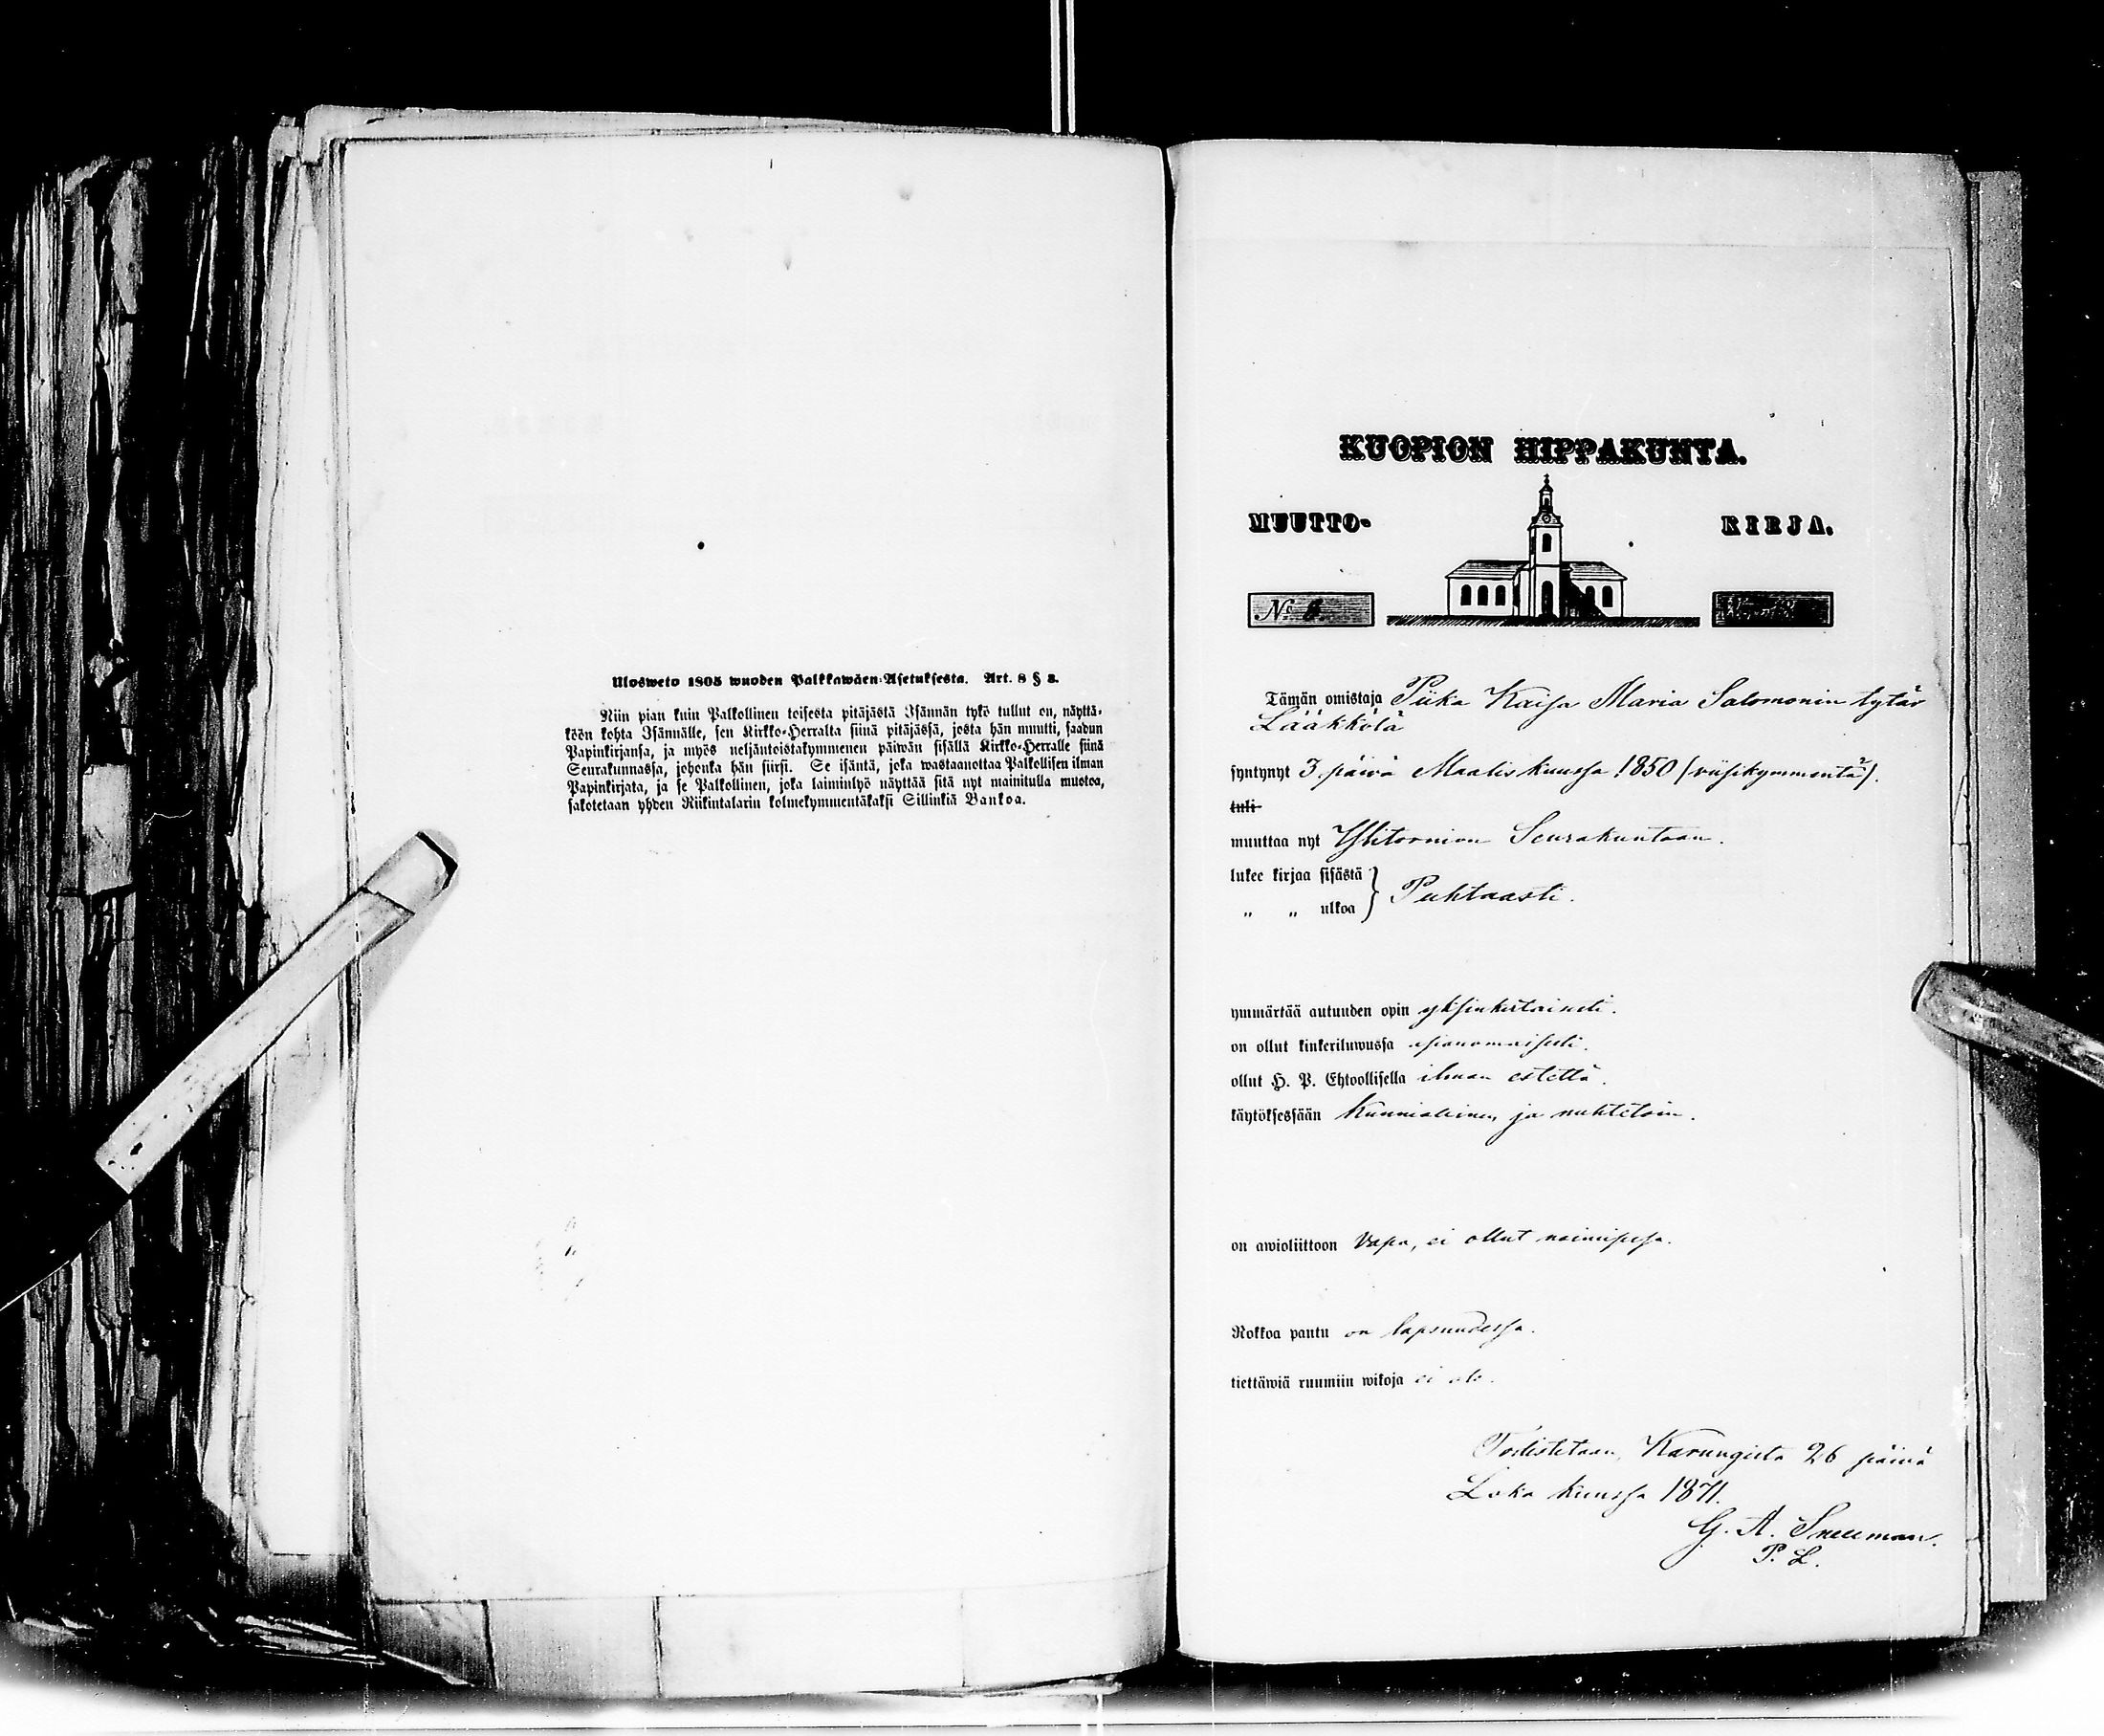 Ulosweto 1805 wuoden Palkkawäen-Asetuksesta. Art. 8 § 3.
Niin pian kuin Palkollinen toisesta pitäjästä Isännän tykö tullut on, näyttä-
köön kohta Isännälle, sen Kirkko-Herralta siinä pitäjässä, josta hän muutti, saadun
Papinkirjansa, ja myös neljäntoistakymmenen päiwän sisällä Kirkko-Herralle siinä
Seurakunnassa, johonka hän siirsi. Se isäntä, joka wastaanottaa Palkollisen ilman
Papinkirjata, ja se Palkollinen, joka laiminlyö näyttää sitä nyt mainitulla muotoa,
sakotetaan yhden Riikintalarin kolmekymmentäkaksi Sillinkiä Bankoa.
KUOPION HIPPAKUNTA.
MUUTTO- KIRJA.
No 8.
Tämän omistaja Piika Kaisa Maria Salomonin tytär
Lääkkölä
syntynyt 3. päivä Maalis kuussa 1850 (viisikymmentä).
tuli
muuttaa nyt Ylitornion Seurakuntaan.
lukee kirjaa sisästä
" " ulkoa } Puhtaasti.
ymmärtää autuuden opin yksinkertaisesti.
on ollut kinkeriluwussa asianomaisesti.
ollut H. P. Ehtoollisella ilman estettä.
käytöksessään Kunniallinen ja nuhtetoin.
on awioliittoon vapa, ei ollut naimisessa.
Rokkoa pantu on lapsuudessa.
tiettäwiä ruumiin wikoja ei ole.
Todistetaan, Karungista 26 päivä
Loka kuussa 1871.
G. A. Snellman.
P. L.